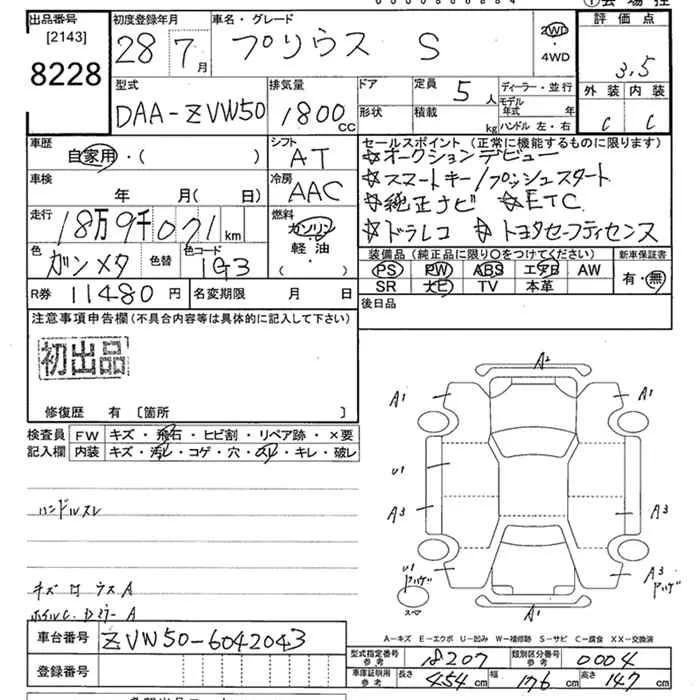 出品番号 初度登録年月 車名・グレード 評価点
[2143] 28年7月 プリウス S 2WD・4WD 3.5
8228
型式 排気量 ドア 定員 ディーラー・並行 外装 内装
DAA-ZVW50 1800CC 形状 5人 積載 kg モデル年式 年 ハンドル 左・右 C C
車歴 シフト セールスポイント (正常に機能するものに限ります)
自家用・( ) AT ☆オークションデビュー
車検 冷房 ☆スマートキー/プッシュスタート
年 月(日) AAC ☆純正ナビ ☆ETC
走行 燃料 ☆ドラレコ ☆トヨタセーフティセンス
18万9千071km ガソリン 軽・油 ・( )
色 色替 色コード 装備品(純正品に限り〇をつけてください) 新車保証書
ガンメタ 1G3 PS PW ABS エアB AW 有・無
R券 11480円 名変期限 月 日 SR ナビ TV 本革
注意事項申告欄(不具合内容等は具体的に記入して下さい) 後日品
初出品
修復歴 有 [箇所 ]
検査員 FW キズ・飛石・ヒビ割・リペア跡・×要
記入欄 内装 キズ・汚レ・コゲ・穴・スレ・キレ・破レ
A2
A1 A1
U1
A3 A3
ハンドルスレ
U1 A3
スペア
A1
キズ
A
A-キズ E-エクボ U-凹み W-補修跡 S-サビ C-腐食 XX-交換済
車台番号 ZVW50-6042043
型式指定番号 参考 18207 類別区分番号 参考 0004
登録番号 車庫証明用 参考 長さ 454cm 幅 176cm 高さ 147cm